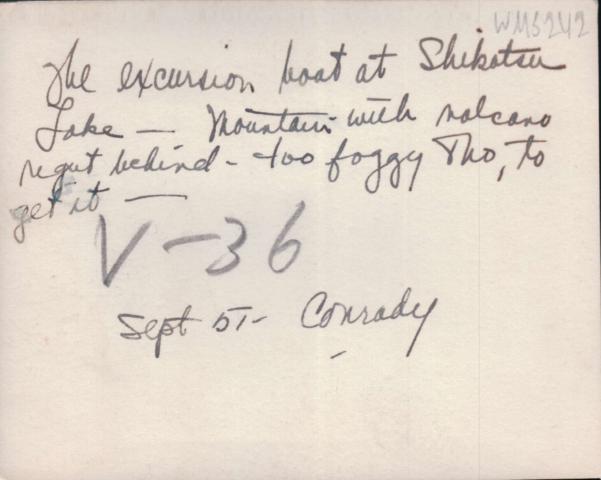 WMS242
The excursion boat at Shikotsu
Lake — Mountain with volcano
right behind - too foggy Tho, to
get it —
V-36
Sept 51- Conrady